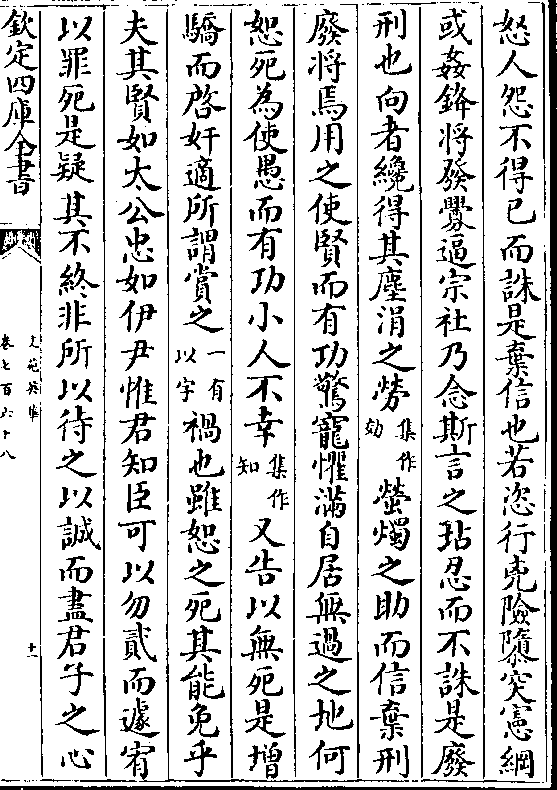 怒人怨不得已而誅是棄信也若恣行兇險隳突憲綱
或姦鋒將發釁逼宗社乃念斯言之玷忍而不誅是廢
刑也向者纔得其塵涓之勞集作効螢燭之助而信棄刑
廢將焉用之使賢而有功驚寵懼滿自居無過之地何
恕死為使愚而有功小人不幸集作知又告以無死是增
驕而啓奸適所謂賞之一有以字禍也雖恕之死其能免乎
夫其賢如太公忠如伊尹惟君知臣可以勿貳而遽宥
以罪死是疑其不終非所以待之以誠而盡君子之心
欽定四庫全書
文苑英華
卷七百六十八
十一